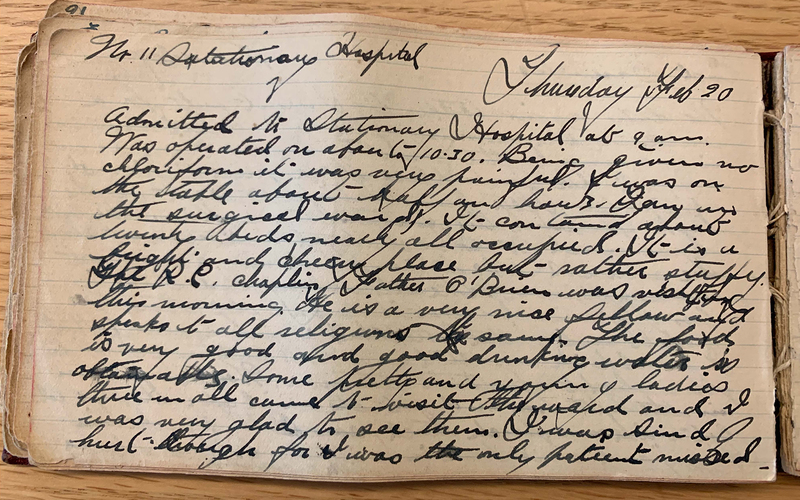 91
No. 11 Stationary Hospital
Thursday Feb 20
Admitted to Stationary Hospital at 9 am.
Was operated on about 10.30. Being given no
chloriform it was very painful. I was on
the table about half an hour. Am in
the surgical ward. It contains about
twenty beds, nearly all occupied. It is a
bright and cheery place but rather stuffy.
The R.C. chaplin, Father O'Brien was visiting
this morning. He is a very nice fellow and
speaks to all religions the same. The food
is very good and good drinking water is
obtainable. Some pretty and young ladies
three in all came to visit the ward and I
was very glad to see them. I was kind of
hurt though for I was the only patient missed